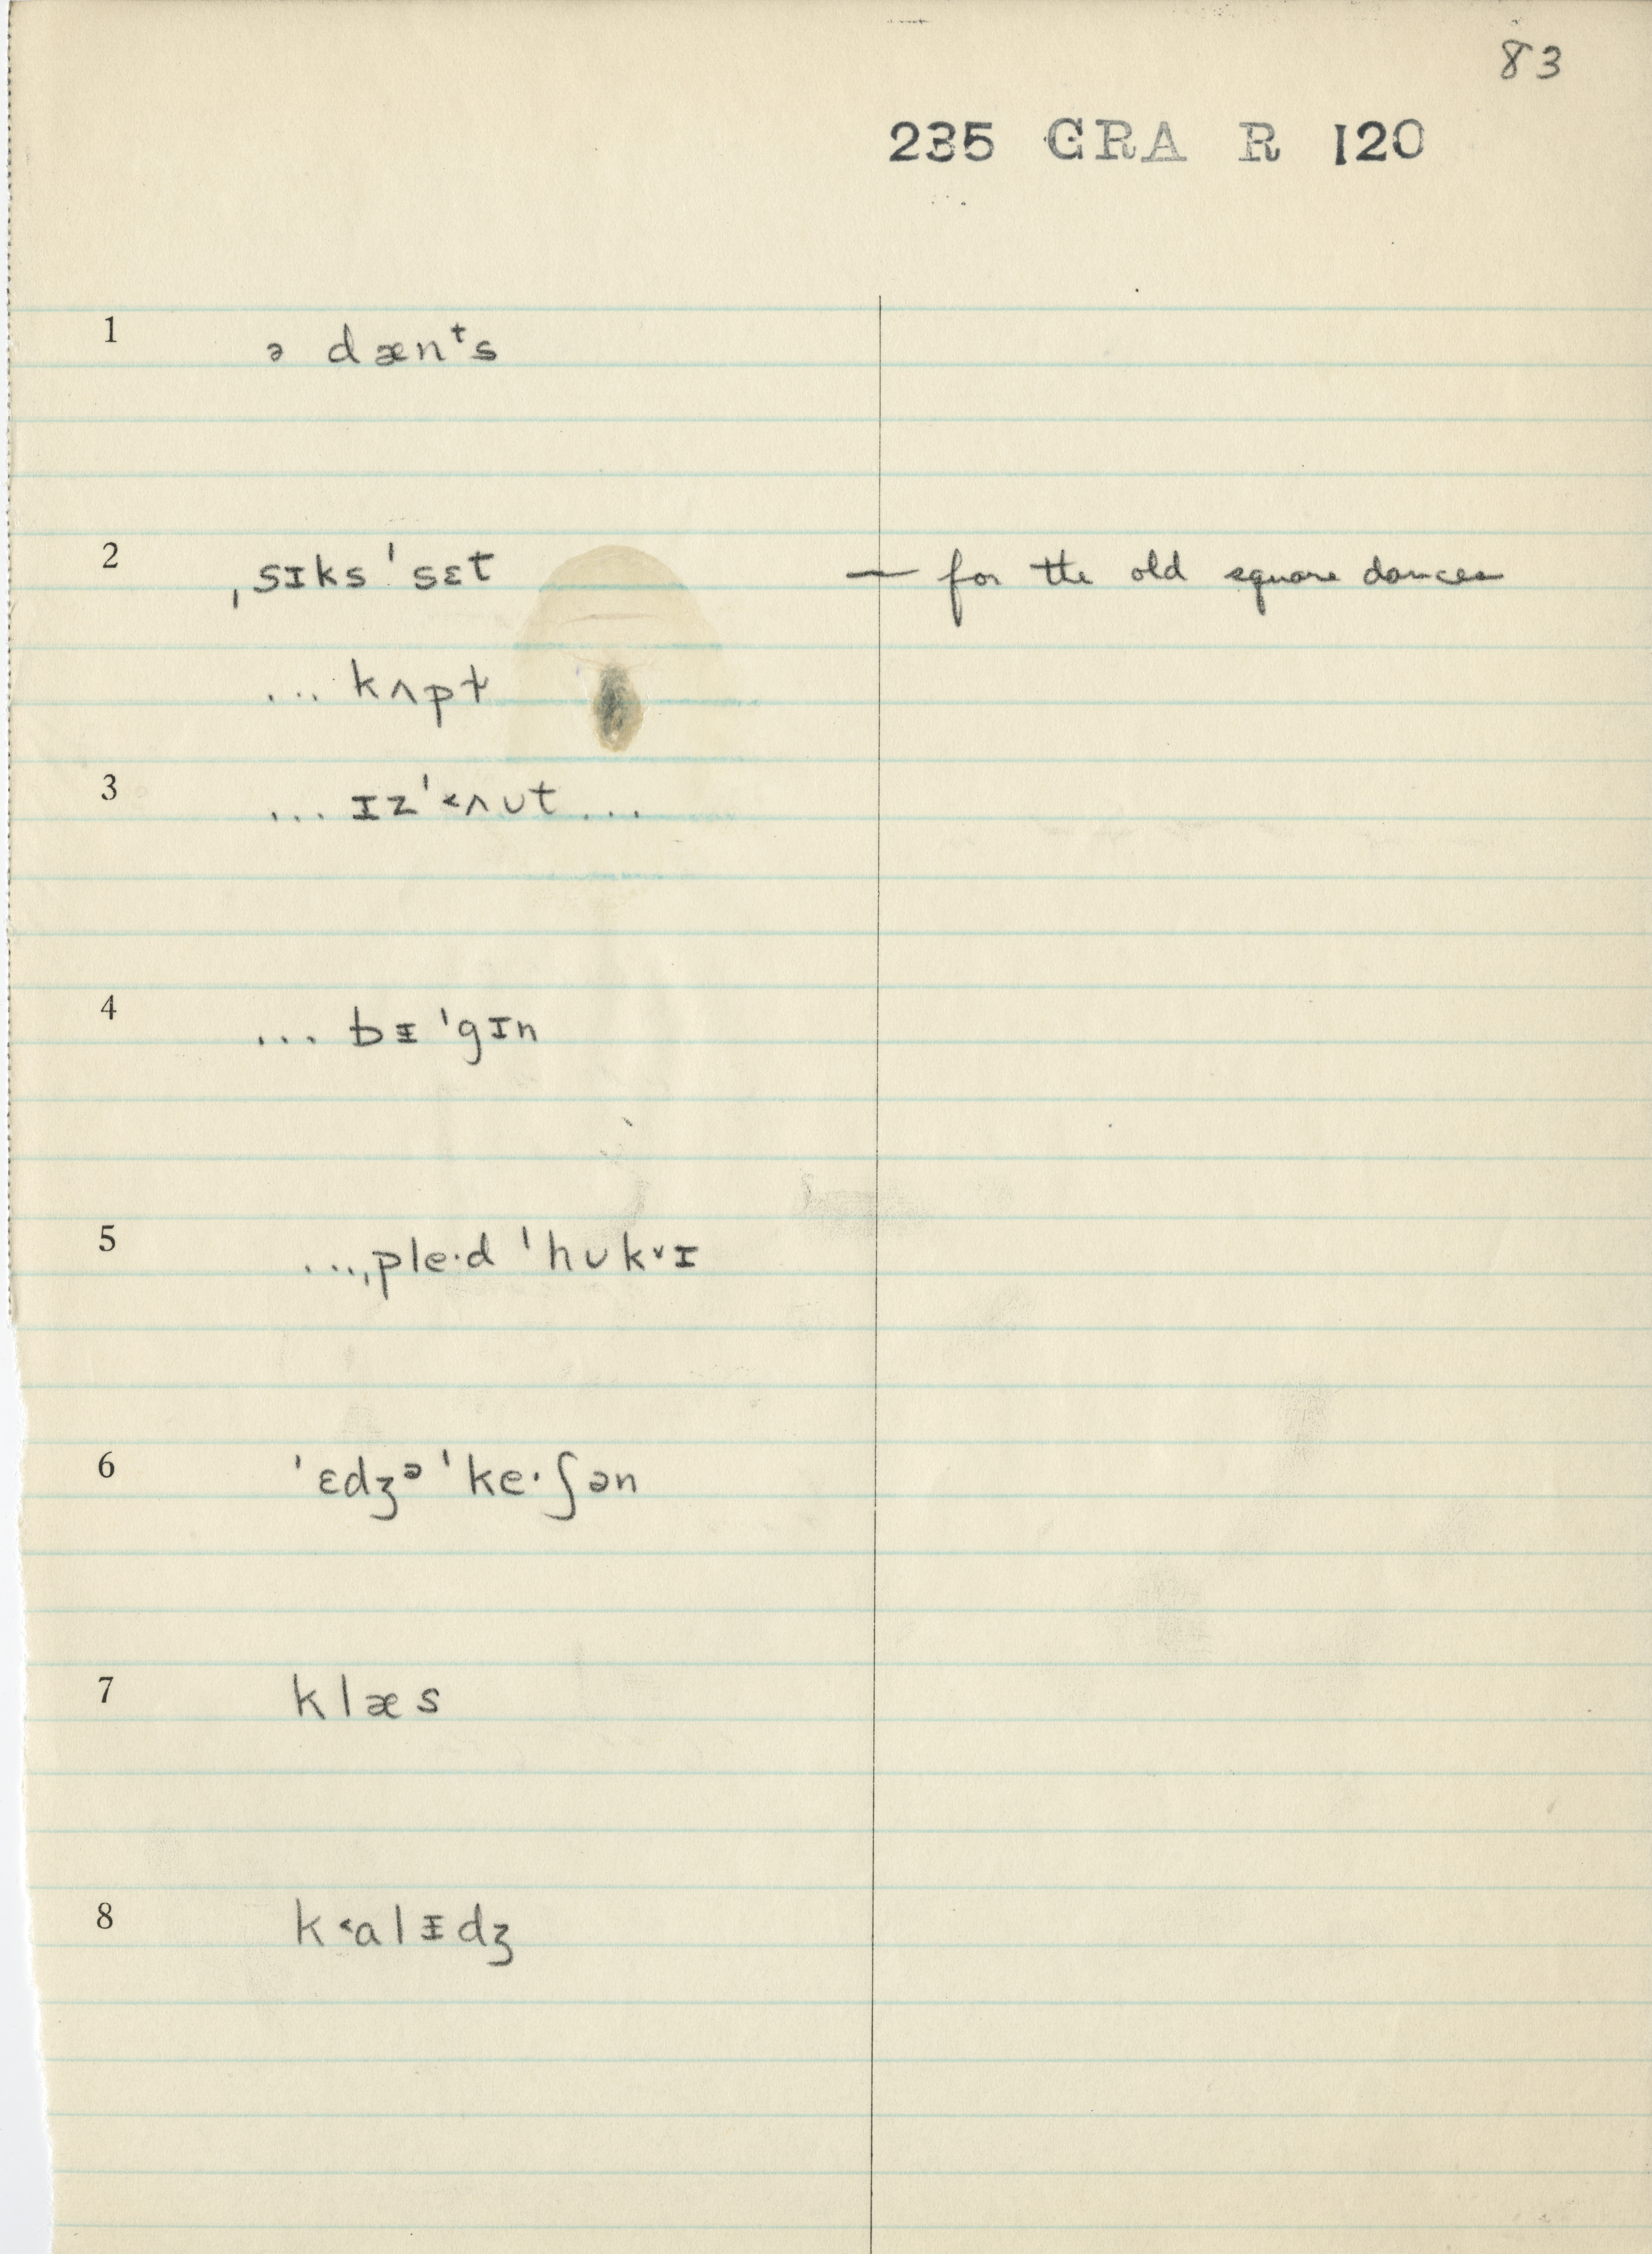 83
235 GRA R 120
1 ə dænᵗs
2 ˌsɪks ˈsɛt — for the old square dances
... kʌpt
3 ... ɪz ˈ˂ʌʊt ...
4 ... bɪ ˈgɪn
5 ... ˌple·d ˈhʊk˅ɪ
6 ˈɛdʒᵊ ˈke·ʃən
7 klæs
8 k˂alɪdʒ